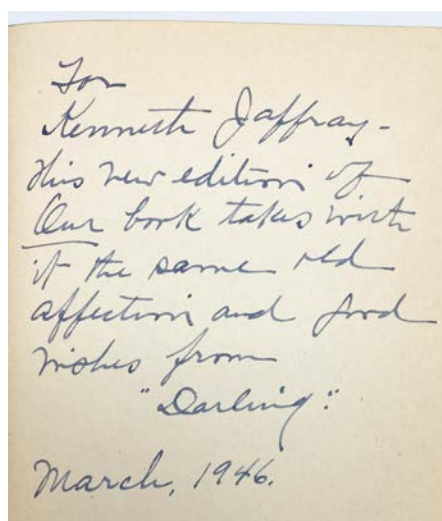 For
Kenneth Jaffray-
This new edition of
Our book takes with
it the same old
affection and good
wishes from
"Darling".
March, 1946.